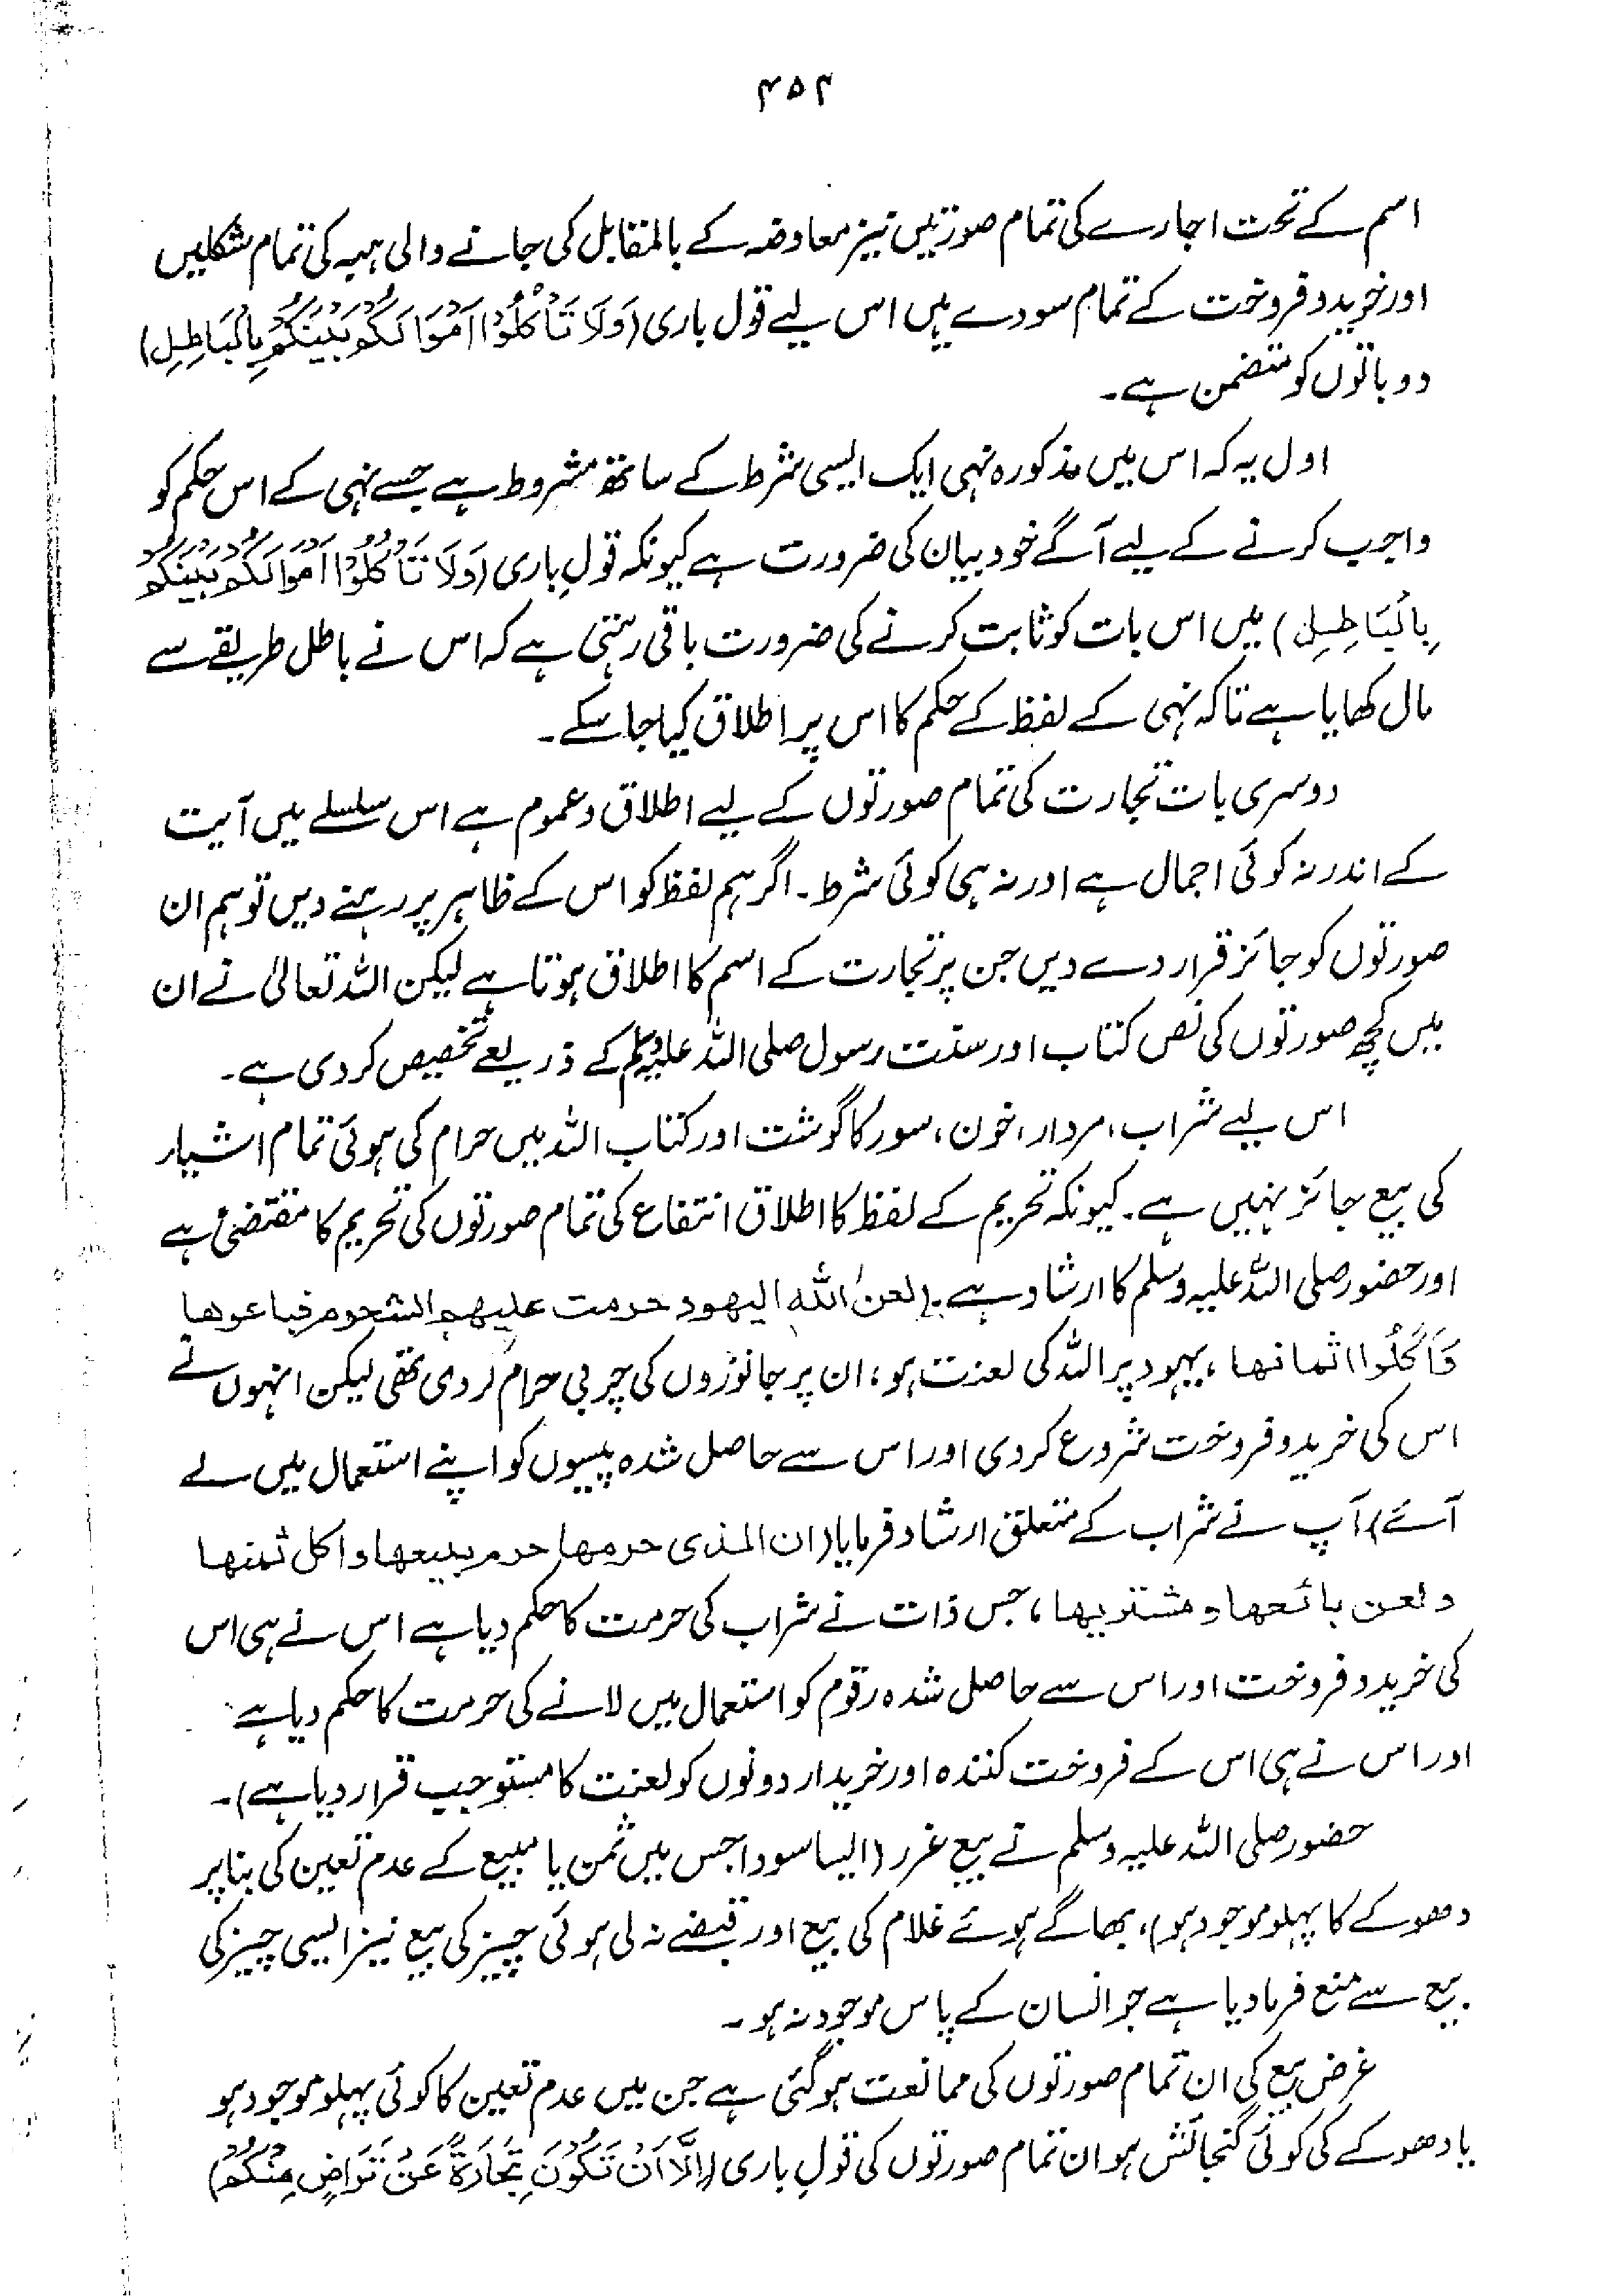 ۴۵۴
اسم کے تحت اجارے کی تمام صورتیں نیز معاوضہ کے بالمقابل کی جانے والی ہبہ کی تمام شکلیں
اور خرید و فروخت کے تمام سودے ہیں اس لیے قول باری (وَلَا تَأْكُلُوْا اَمْوَالَكُمْ بَيْنَكُمْ بِالْبَاطِلِ)
دو باتوں کو متضمن ہے۔
اول یہ کہ اس میں مذکورہ نہی ایک ایسی شرط کے ساتھ مشروط ہے جسے نہی کے اس حکم کو
واجب کرنے کے لیے آگے خود بیان کی ضرورت ہے کیونکہ قولِ باری (وَلَا تَأْكُلُوْا اَمْوَالَكُمْ بَيْنَكُمْ
بِالْبَاطِلِ) میں اس بات کو ثابت کرنے کی ضرورت باقی رہتی ہے کہ اس نے باطل طریقے سے
مال کھایا ہے تاکہ نہی کے لفظ کے حکم کا اس پر اطلاق کیا جا سکے۔
دوسری بات تجارت کی تمام صورتوں کے لیے اطلاق و عموم ہے اس سلسلے میں آیت
کے اندر نہ کوئی اجمال ہے اور نہ ہی کوئی شرط۔ اگر ہم لفظ کو اس کے ظاہر پر رہنے دیں تو ہم ان
صورتوں کو جائز قرار دے دیں جن پر تجارت کے اسم کا اطلاق ہوتا ہے لیکن اللہ تعالیٰ نے ان
میں کچھ صورتوں کی نص کتاب اور سنت رسول صلی اللہ علیہ وسلم کے ذریعے تخصیص کر دی ہے۔
اس لیے شراب، مردار، خون، سور کا گوشت اور کتاب اللہ میں حرام کی ہوئی تمام اشیار
کی بیع جائز نہیں ہے۔ کیونکہ تحریم کے لفظ کا اطلاق انتفاع کی تمام صورتوں کی تحریم کا مقتضیٔ ہے
اور حضور صلی اللہ علیہ وسلم کا ارشاد ہے: (لعن الله اليهود حرمت عليهم الشحوم فباعوها
فَاَكَلُوا اثمانها، یہود پر اللہ کی لعنت ہو، ان پر جانوروں کی چربی حرام کر دی تھی لیکن انہوں نے
اس کی خرید و فروخت شروع کر دی اور اس سے حاصل شدہ پیسوں کو اپنے استعمال میں لے
آئے) آپ نے شراب کے متعلق ارشاد فرمایا (ان الذى حرمها حرم بيعها واكل ثمنها
ولعن بائعها ومشتريها، جس ذات نے شراب کی حرمت کا حکم دیا ہے اس نے ہی اس
کی خرید و فروخت اور اس سے حاصل شدہ رقوم کو استعمال میں لانے کی حرمت کا حکم دیا ہے
اور اس نے ہی اس کے فروخت کنندہ اور خریدار دونوں کو لعنت کا مستوجب قرار دیا ہے)۔
حضور صلی اللہ علیہ وسلم نے بیع غرر (ایسا سودا جس میں ثمن یا مبیع کے عدم تعین کی بنا پر
دھوکے کا پہلو موجود ہو)، بھاگے ہوئے غلام کی بیع اور قبضے نہ لی ہوئی چیز کی بیع نیز ایسی چیز کی
بیع سے منع فرما دیا ہے جو انسان کے پاس موجود نہ ہو۔
غرض بیع کی ان تمام صورتوں کی ممانعت ہو گئی ہے جن میں عدم تعین کا کوئی پہلو موجود ہو
یا دھوکے کی کوئی گنجائش ہو ان تمام صورتوں کی قول باری (اِلَّا اَنْ تَكُوْنَ تِجَارَةً عَنْ تَرَاضٍ مِنْكُمْ)